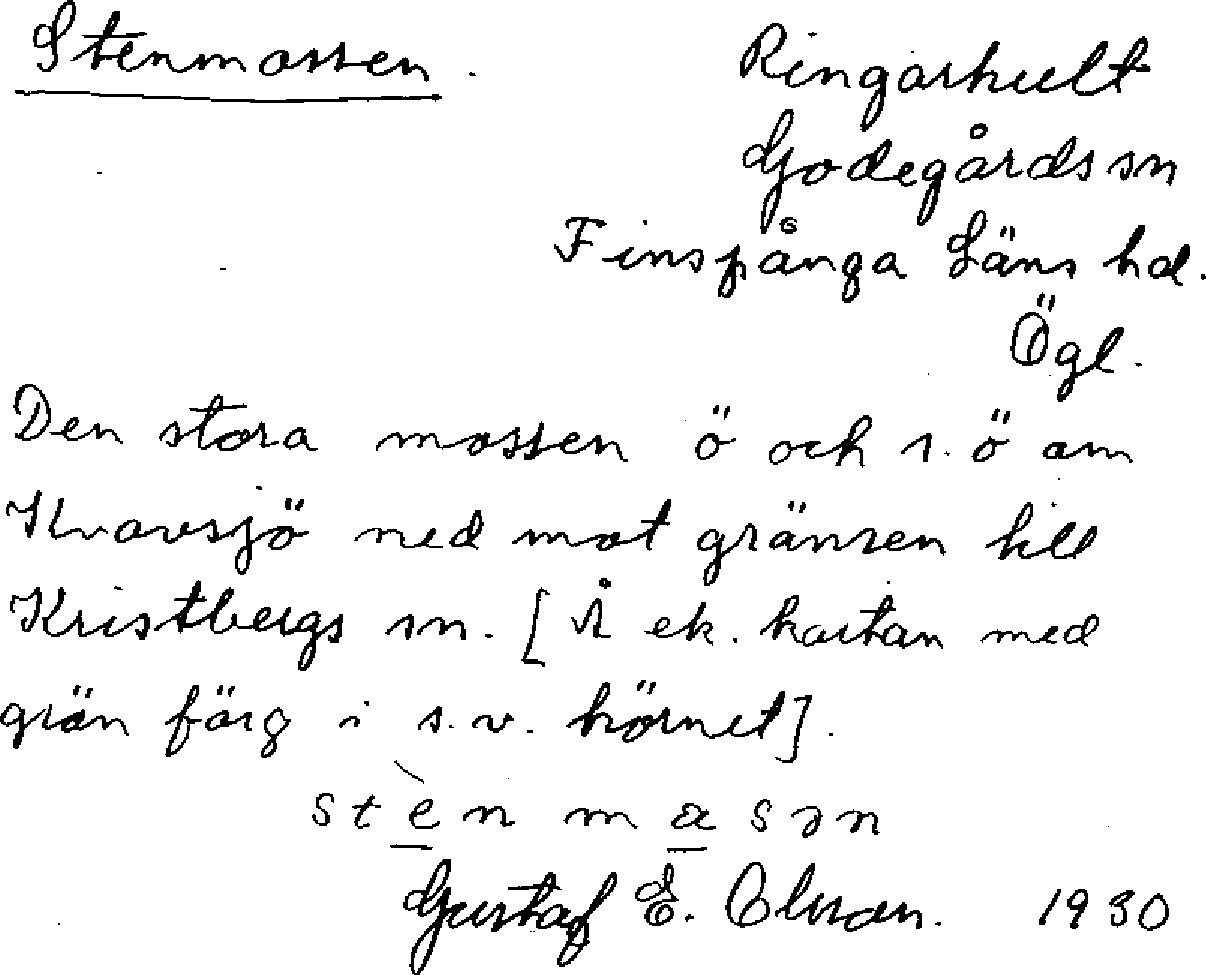 Stenmossen.
Ringarhult
Godegårds sn
Finspånga Läns hd.
Ögl.
Den stora mossen ö och s.ö om
Kvarsjö ned mot gränsen till
Kristbergs sn. [Å ek. kartan med
grön färg i s.v. hörnet].
stè̱n ma̱sən
Gustaf E. Olsson. 1930